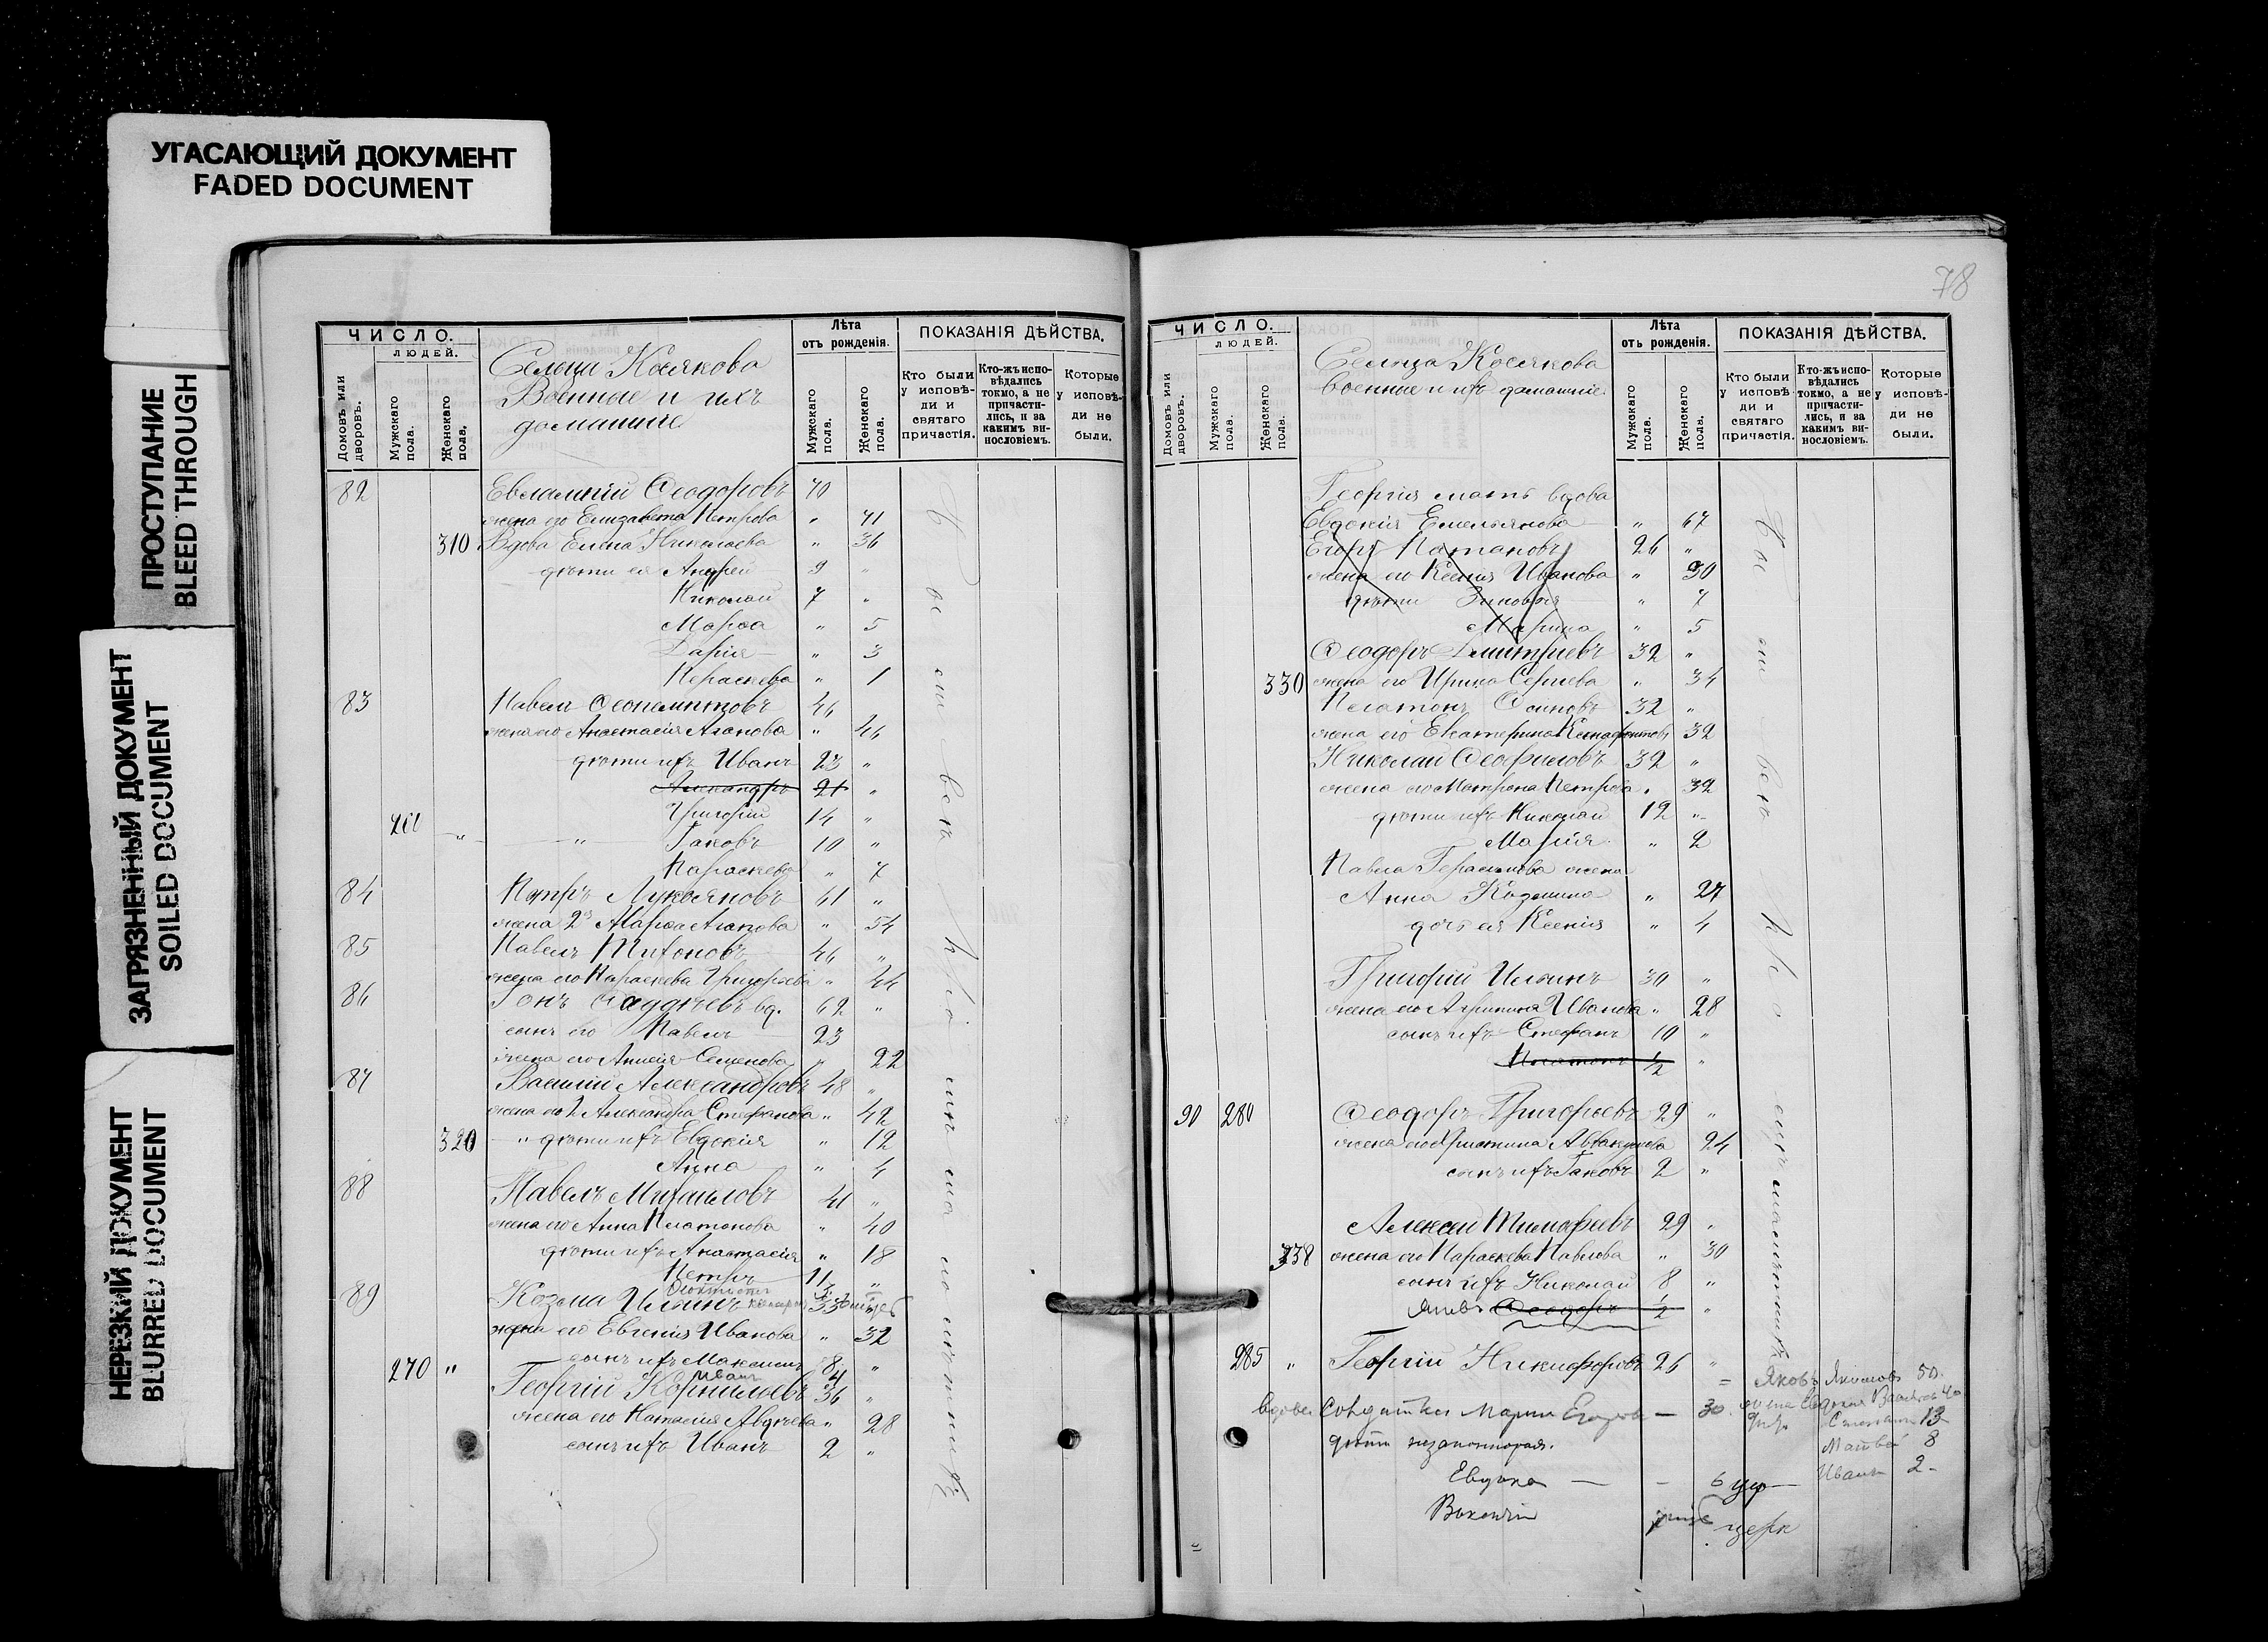 УГАСАЮЩИЙ ДОКУМЕНТ
FADED DOCUMENT
ПРОСТУПАНИЕ
BLEED THROUGH
ЗАГРЯЗНЕННЫЙ ДОКУМЕНТ
SOILED DOCUMENT
НЕРЕЗКИЙ ДОКУМЕНТ
BLURRED DOCUMENT
ЧИСЛО.
ЛЮДЕЙ.
Домовъ или дворовъ.
Мужскаго пола.
Женскаго пола.
Сельца Косякова
Военные и ихъ
домашніе
Лѣта
отъ рожденія.
Мужскаго пола.
Женскаго пола.
ПОКАЗАНІЯ ДѢЙСТВА.
Кто были у исповѣ-
ди и
святаго
причастія.
Кто-жъ испо-
вѣдались
токмо, а не
причасти-
лись, и за
какимъ ви-
нословіемъ.
Которые
у исповѣ-
ди не
были.
82 Евлампій Ѳеодоровъ 70
жена его Елизавета Петрова " 71
310 Вдова Елена Николаева " 36
дѣти ея Андрей 9 "
Николай 7 "
Марѳа " 5
Дарія " 3
Параскева " 1
83 Павелъ 46
жена его Анастасія Агапова " 46
дѣти ихъ Иванъ 23 "
Александръ 21 "
Григорій 14 "
Іаковъ 10 "
Параскева " 7
84 Петръ Лукьяновъ 61 "
жена 2я Марѳа Агапова " 54
85 Павелъ Тихоновъ 46 "
жена его Параскева Григорьева " 44
86 Іонъ Ѳаддѣевъ вд. 62 "
сынъ его Павелъ 23
жена его Анисія Семенова " 22
87 Василій Александровъ 48 "
жена его 2 Александра Стефанова " 42
320 " дѣти ихъ Евдокія " 12
Анна " 4
88 Павелъ Михаиловъ 41 "
жена его Анна Платонова " 40
дѣти ихъ Анастасія " 18
Петръ 11 "
89 Козма Ильинъ 33
жена его Евгенія Ивановa " 32
270 " сынъ ихъ Максимъ 8 "
Иванъ 4
Георгій Корнильевъ 36 "
жена его Наталія Авдѣева " 28
сынъ ихъ Иванъ 2 "
78
ЧИСЛО.
ЛЮДЕЙ.
Домовъ или дворовъ.
Мужскаго пола.
Женскаго пола.
Сельца Косякова
военные и ихъ домашніе.
Лѣта
отъ рожденія.
Мужскаго пола.
Женскаго пола.
ПОКАЗАНІЯ ДѢЙСТВА.
Кто были
у исповѣ-
ди и
святаго
причастія.
Кто-жъ испо-
вѣдались
токмо, а не
причасти-
лись, и за
какимъ ви-
нословіемъ.
Которые
у исповѣ-
ди не
были.
Георгія мать вдова
Евдокія Емельянова " 67
Егоръ Потаповъ 26 "
жена его Ксенія Иванова " 30
дѣти Зиновія " 7
Марина " 5
Ѳеодоръ Димитріевъ 32 "
330 жена его Ирина Сергіева " 34
Платонъ Осиповъ 32 "
жена его Екатерина Ксенофонтова 32
Николай Ѳеофиловъ 32 "
жена его Матрона Петрова " 32
дѣти ихъ Николай 12 "
Марія " 2
Павла Герасимова жена
Анна Козмина " 27
дочь ея Ксенія " 4
Григорій Ильинъ 30 "
жена его Агрипина Иванова " 28
сынъ ихъ Стефанъ 10 "
Платонъ 1/2 "
90 280 Ѳеодоръ Григорьевъ 29 "
жена его Христина Аввакумова 24
сынъ ихъ Іаковъ 2 "
Алексей Тимофеевъ 29 "
338 жена его Параскева Павлова " 30
сынъ ихъ Николай 8 "
Ѳеодоръ 1/2 "
285 " Георгій Никифоровъ 26 "
Яковъ 50
вдова Солдатка Марія — 30
13
Матвѣй 8
Евдокія — 6
Иванъ 2